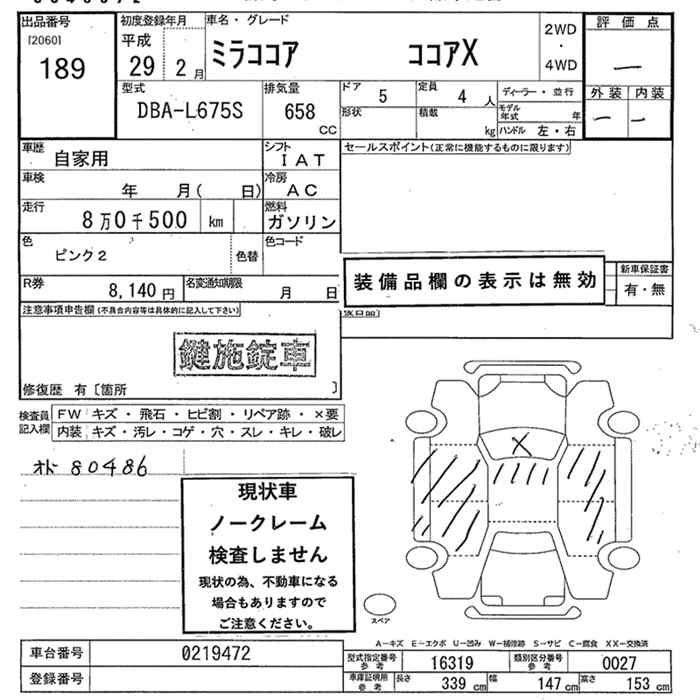 出品番号
[2060]
189
初度登録年月
平成
29 2 月
車名・グレード
ミラココア ココアX
2WD
・
4WD
評価点
—
外装 内装
— —
型式
DBA-L675S
排気量
658
CC
ドア 5
定員 4 人
形状
積載
kg
ディーラー・並行
モデル年式 年
ハンドル 左・右
車歴
自家用
シフト
IAT
セールスポイント(正常に機能するものに限ります)
車検
年 月( 日)
冷房
AC
走行
8万0千500 km
燃料
ガソリン
色
ピンク2
色替
色コード
装備品欄の表示は無効
新車保証書
有・無
R券
8,140 円
名変通知期限
月 日
注意事項申告欄(不具合内容等は具体的に記入して下さい)
鍵施錠車
修復歴 有〔箇所 〕
検査員記入欄
FW キズ・飛石・ヒビ割・リペア跡・×要
内装 キズ・汚レ・コゲ・穴・スレ・キレ・破レ
オド 80486
現状車
ノークレーム
検査しません
現状の為、不動車になる
場合もありますので
ご注意ください。
X
スペア
A-キズ E-エクボ U-凹み W-補修跡 S-サビ C-腐食 XX-交換済
車台番号 0219472
登録番号
型式指定番号参考 16319
類別区分番号参考 0027
車庫証明用参考
長さ 339 cm
幅 147 cm
高さ 153 cm